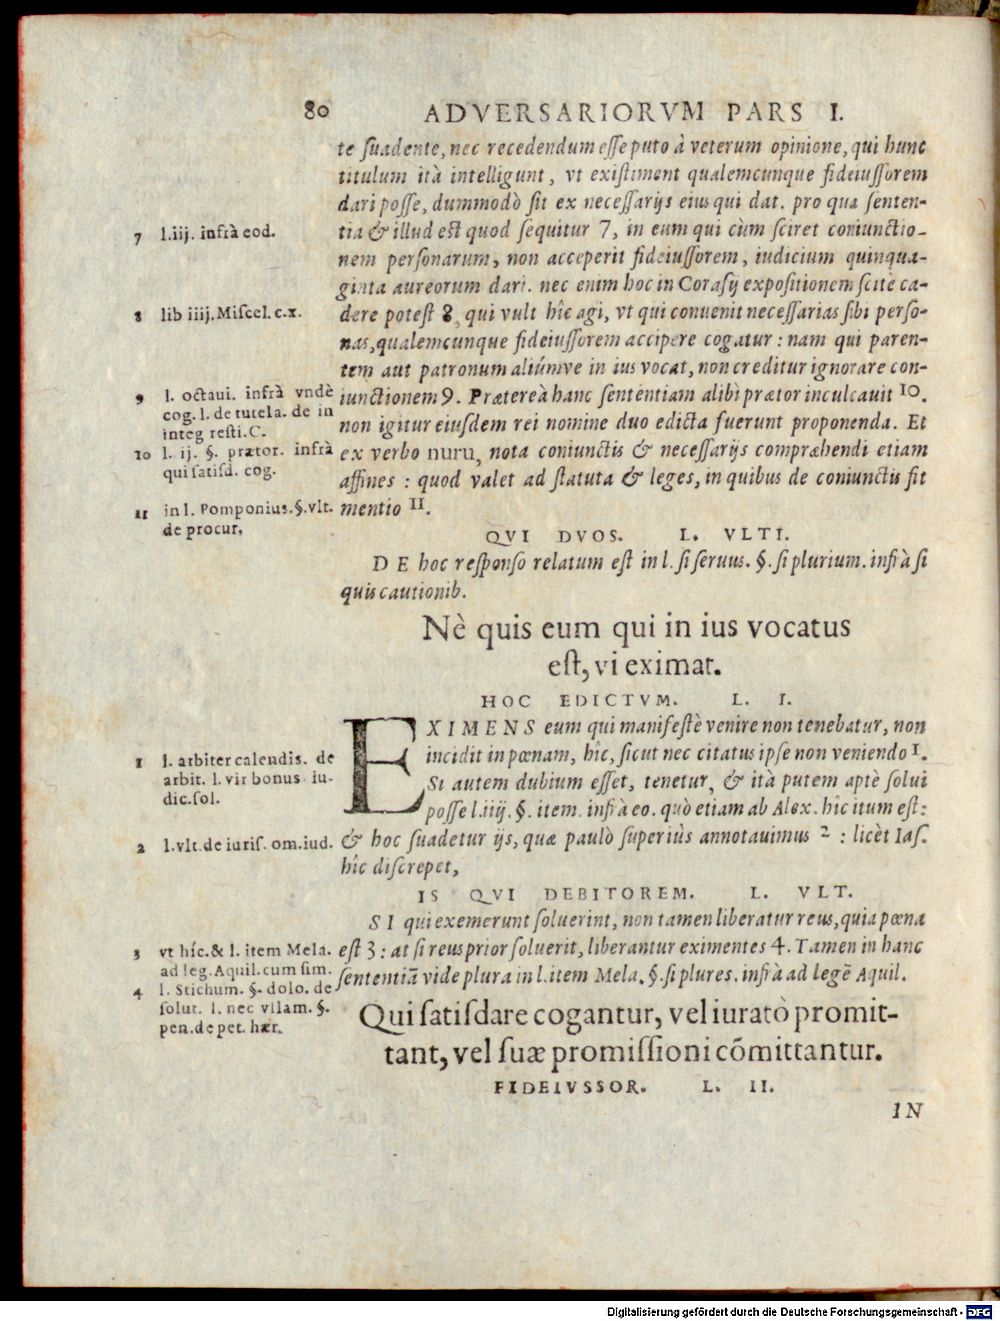 80 ADVERSARIORVM PARS I.
te suadente, nec recedendum esse puto à veterum opinione, qui hunc
titulum ità intelligunt, vt existiment qualemcunque fideiussorem
dari posse, dummodò sit ex necessarijs eius qui dat. pro qua senten-
tia & illud est quod sequitur 7, in eum qui cùm sciret coniunctio-
nem personarum, non acceperit fideiussorem, iudicium quinqua-
ginta aureorum dari. nec enim hoc in Corasij expositionem scitè ca-
dere potest 8, qui vult hîc agi, vt qui conuenit necessarias sibi perso-
nas, qualemcunque fideiussorem accipere cogatur: nam qui paren-
tem aut patronum aliúmve in ius vocat, non creditur ignorare con-
iunctionem 9. Prætereà hanc sententiam alibi prætor inculcauit 10.
non igitur eiusdem rei nomine duo edicta fuerunt proponenda. Et
ex verbo nuru, nota coniunctis & necessarijs compræhendi etiam
affines: quod valet ad statuta & leges, in quibus de coniunctis fit
mentio 11.
7 l.iij. infrà eod.
8 lib iiij. Miscel. c.x.
9 l. octaui. infrà vndè
cog. l. de tutela. de in
integ resti. C.
10 l. ij. §. prætor. infrà
qui satisd. cog.
11 in l. Pomponius. §. vlt.
de procur.
QVI DVOS. L. VLTI.
DE hoc responso relatum est in l. si seruus. §. si plurium. infrà si
quis cautionib.
Nè quis eum qui in ius vocatus
est, vi eximat.
HOC EDICTVM. L. I.
EXIMENS eum qui manifestè venire non tenebatur, non
incidit in pœnam, hîc, sicut nec citatus ipse non veniendo 1.
Si autem dubium esset, tenetur, & ità putem aptè solui
posse l.iiij. §. item. infrà eo. quò etiam ab Alex. hîc itum est:
& hoc suadetur ijs, quæ paulò superiùs annotauimus 2 : licèt Ias.
hîc discrepet,
1 l. arbiter calendis. de
arbit. l. vir bonus. iu-
dic. sol.
2 l.vlt. de iuris. om. iud.
IS QVI DEBITOREM. L. VLT.
SI qui exemerunt soluerint, non tamen liberatur reus, quia pœna
est 3 : at si reus prior soluerit, liberantur eximentes 4. Tamen in hanc
sententiā vide plura in l. item Mela. §. si plures. infrà ad legē Aquil.
3 vt híc. & l. item Mela.
ad leg. Aquil. cum sim.
4 l. Stichum. §. dolo. de
solut. l. nec vllam. §.
pen. de pet. hær.
Qui satisdare cogantur, vel iuratò promit-
tant, vel suæ promissioni cōmittantur.
FIDEIVSSOR. L. II.
IN
Digitalisierung gefördert durch die Deutsche Forschungsgemeinschaft - DFG